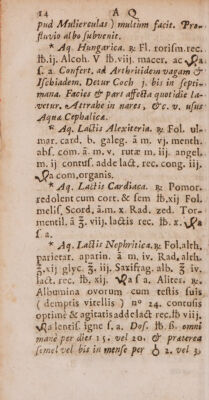 14 A Q
pud Mulierculas) multum facit. Pro-
fluvio albo subvenit.
* Aq. Hungarica. ℞ Fl. rorism. rec.
℔ ij. Alcoh. V ℔ viij. macer. ac
s. a. Confert, ad Arthritidem vagam &
Ischiadem. Detur Coch j. bis in septi-
mana. Facies & pars affecta quotidie la-
vetur. Attrahe in nares, &c. v. usus
Aqua Cephalica.
* Aq. Lactis Alexiteria. ℞ Fol. ul-
mar. card. b. galeg. ā m. vj. menth.
abs. com. ā m. v. rutæ m. iij. angel.
m. ij contus. adde lact. rec. cong. iij.
com, organis.
* Aq. Lactis Cardiaca. ℞ Pomor.
redolent cum cort. & sem ℔ xij Fol.
melis. Scord, ā m. x Rad. zed. Tor-
mentil. ā ℥ viij. lactis rec. ℔ x.
s. a.
* Aq. Lactis Nephritica. ℞ Fol. alth.
parietar. apatin. ā m, iv. Rad, alth.
℥ xij glyc. ℥ iij. Saxifrag. alb. ℥ iv.
lact. rec. ℔ xij. s a. Aliter. ℞
Albumina ovorum cum testis suis
(demptis vitellis) nº 24. contusis
optime & agitatis adde lact rec. ℔ viij
lentis. igne s. a. Dos. ℔ ß. omni
mane per dies 15. vel 20. & præterea
semel vel bis in mense per 2. vel 3.